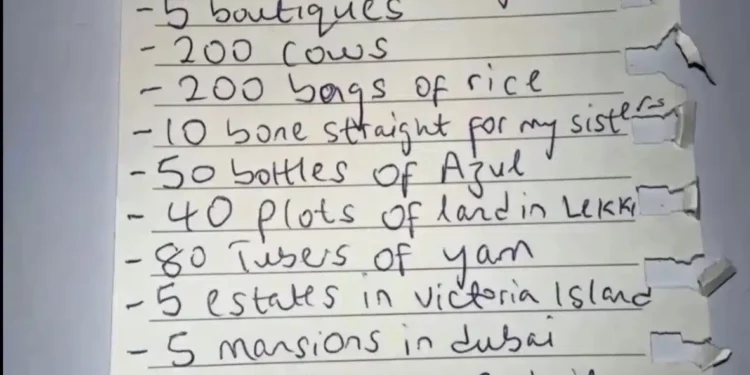 - 5 boutiques
- 200 cows
- 200 bags of rice
- 10 bone straight for my sisters
- 50 bottles of Azul
- 40 plots of land in Lekki
- 80 Tubers of yam
- 5 estates in victoria Island
- 5 mansions in dubai